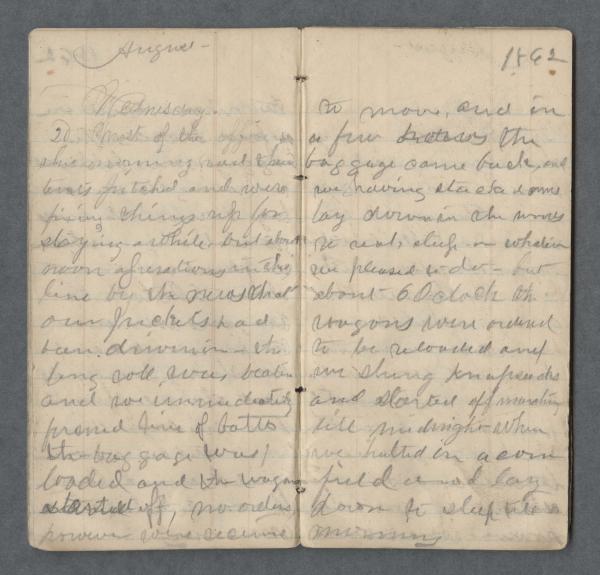 August
Wednesday
20. Most of the officers
this morning had their
tents pitched and were
fixing things up for
staying a while, but about
noon operations in this
line by the news that
our pickets had
been driven in - the
long roll was beaten
and we immediately
formed line of battle
the baggage was
loaded and the wagons
started off, no orders
however were received
1862
to move, and in
a few hours the
baggage came back, and
we having stacked arms
lay down in the woods
to rest, sleep or whatever
we pleased to do - but
about 6 Oclock the
wagons were ordered
to be reloaded and
we slung knapsacks
and started off marching
till midnight when
we halted in a corn
field and lay
down to sleep till
morning